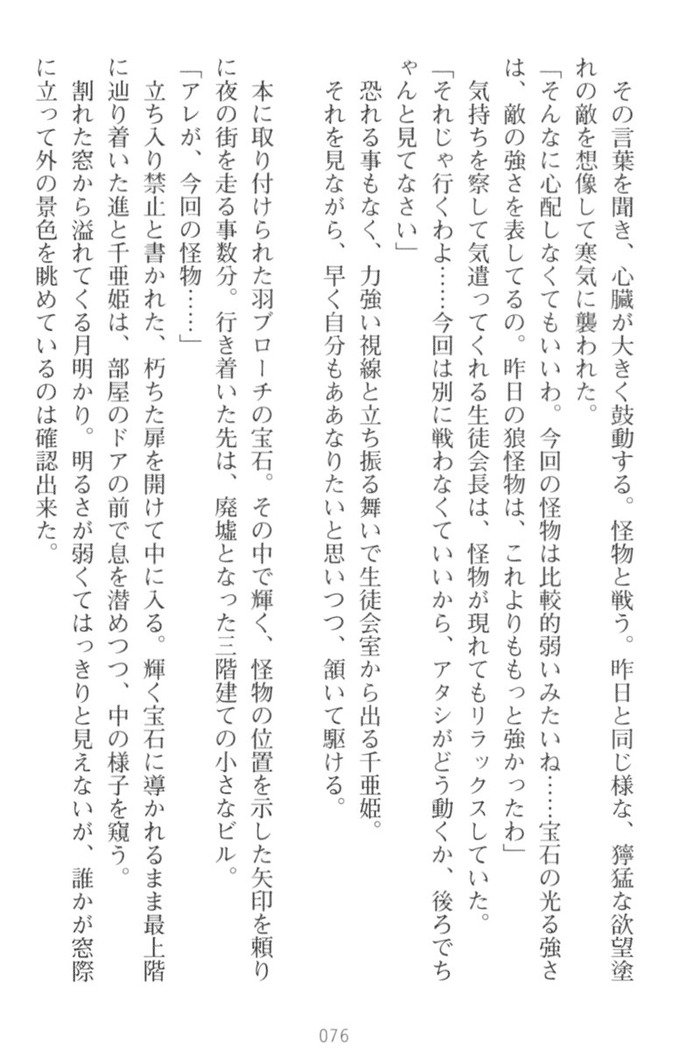 その言葉を聞き、心臓が大きく鼓動する。怪物と戦う。昨日と同じ様な、獰猛な欲望塗
れの敵を想像して寒気に襲われた。
「そんなに心配しなくてもいいわ。今回の怪物は比較的弱いみたいね……宝石の光る強さ
は、敵の強さを表してるの。昨日の狼怪物は、これよりももっと強かったわ」
気持ちを察して気遣ってくれる生徒会長は、怪物が現れてもリラックスしていた。
「それじゃ行くわよ……今回は別に戦わなくていいから、アタシがどう動くか、後ろでち
ゃんと見てなさい」
恐れる事もなく、力強い視線と立ち振る舞いで生徒会室から出る千亜姫。
それを見ながら、早く自分もああなりたいと思いつつ、頷いて駆ける。
本に取り付けられた羽ブローチの宝石。その中で輝く、怪物の位置を示した矢印を頼り
に夜の街を走る事数分。行き着いた先は、廃墟となった三階建ての小さなビル。
「アレが、今回の怪物……」
立ち入り禁止と書かれた、朽ちた扉を開けて中に入る。輝く宝石に導かれるまま最上階
に辿り着いた進と千亜姫は、部屋のドアの前で息を潜めつつ、中の様子を窺う。
割れた窓から溢れてくる月明かり。明るさが弱くてはっきりと見えないが、誰かが窓際
に立って外の景色を眺めているのは確認出来た。
076